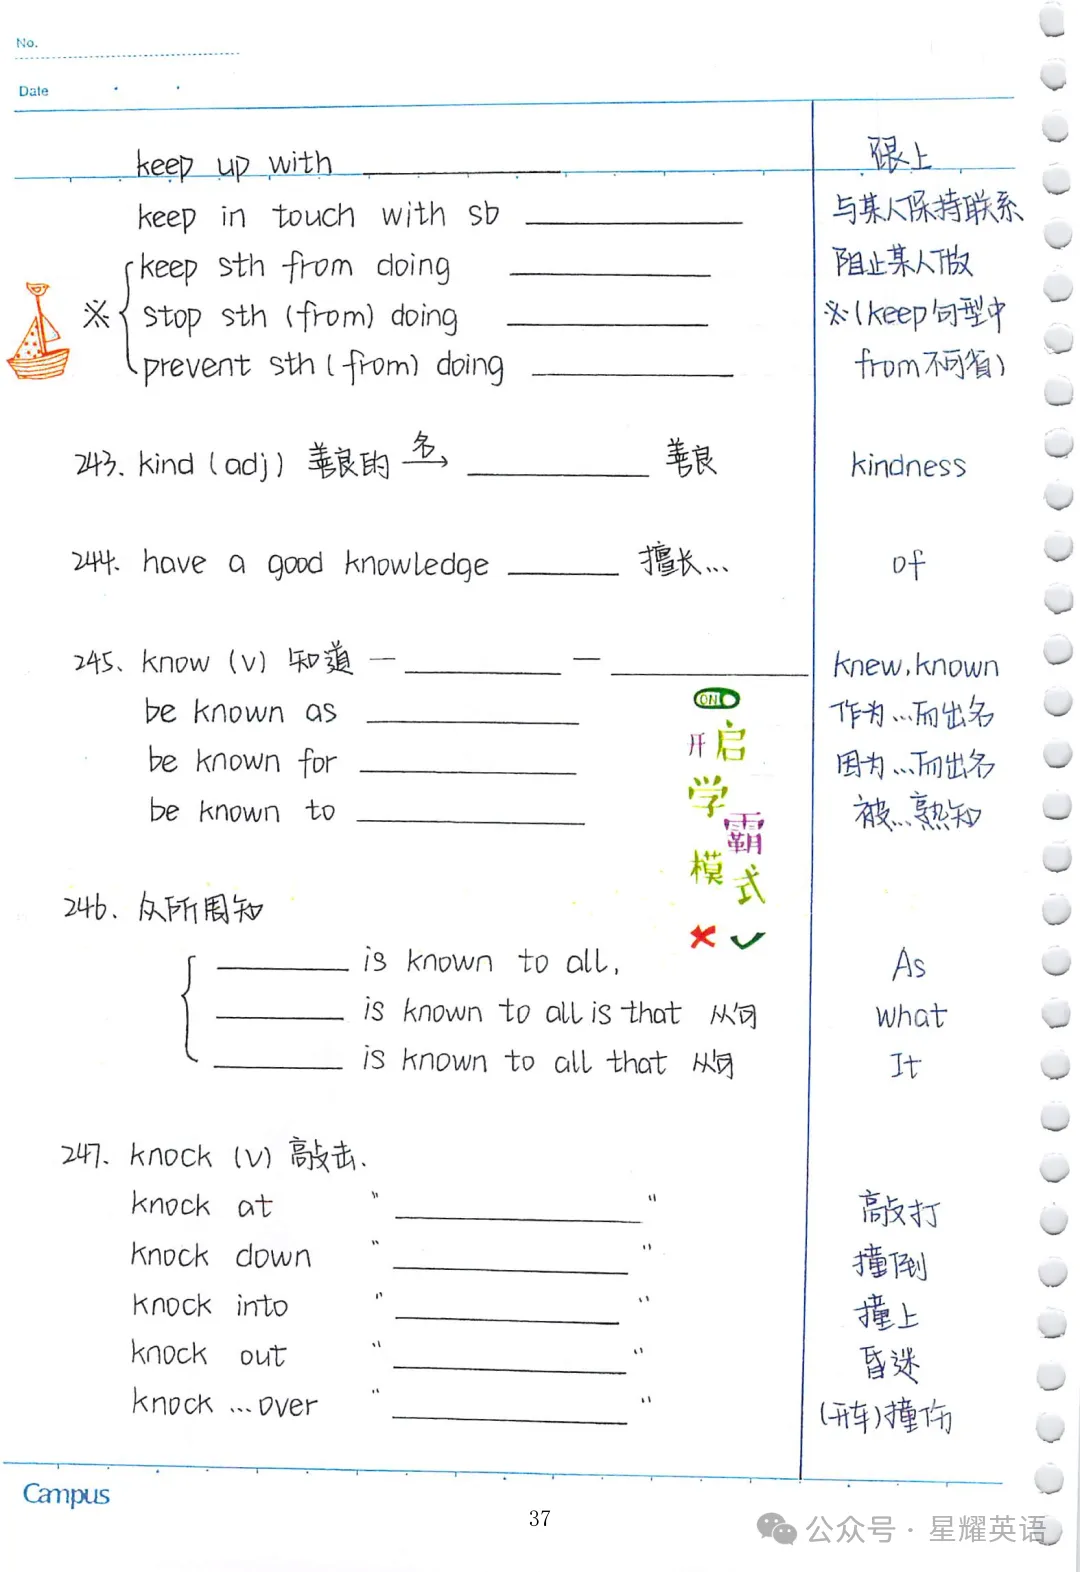 No.
Date
keep up with ________ 跟上
keep in touch with sb ________ 与某人保持联系
keep sth from doing ________ 阻止某人做
※ stop sth (from) doing ________ ※(keep句型中
prevent sth (from) doing ________ from不可省)
243. kind (adj) 善良的 名→ ________ 善良 kindness
244. have a good knowledge ________ 擅长... of
245. know (v) 知道 — ________ — ________ knew, known
be known as ________ 作为...而出名
be known for ________ 因为...而出名
be known to ________ 被...熟知
ON
开启
学霸
模式
246. 众所周知
________ is known to all, As
________ is known to all is that 从句 what
________ is known to all that 从句 It
247. knock (v) 敲击.
knock at " ________ " 敲打
knock down " ________ " 撞倒
knock into " ________ " 撞上
knock out " ________ " 昏迷
knock ...over " ________ " (开车)撞伤
Campus
37
公众号 · 星耀英语